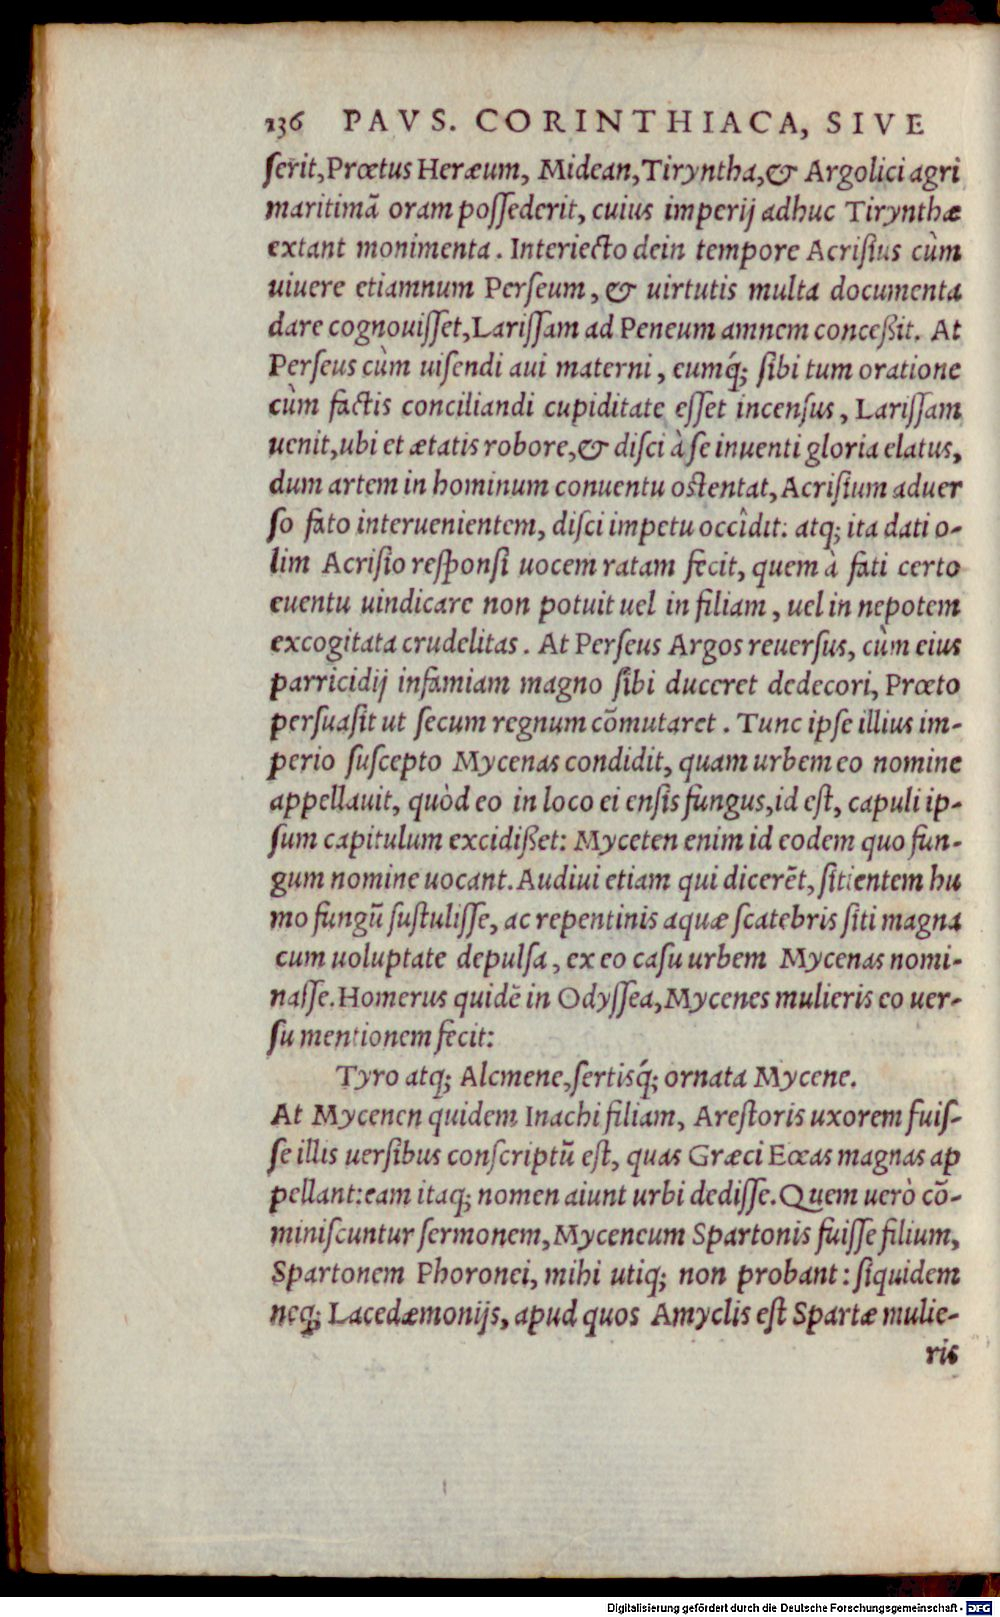 136 PAVS. CORINTHIACA, SIVE
ſerit, Prœtus Heræum, Midean, Tiryntha, & Argolici agri
maritimã oram poſſederit, cuius imperij adhuc Tirynthæ
extant monimenta. Interiecto dein tempore Acriſius cùm
uiuere etiamnum Perſeum, & uirtutis multa documenta
dare cognouiſſet, Lariſſam ad Peneum amnem conceßit. At
Perſeus cùm uiſendi aui materni, eumq́; ſibi tum oratione
cùm factis conciliandi cupiditate eſſet incenſus, Lariſſam
uenit, ubi et ætatis robore, & diſci à ſe inuenti gloria elatus,
dum artem in hominum conuentu oſtentat, Acriſium aduer
ſo fato interuenientem, diſci impetu occîdit: atq; ita dati o-
lim Acriſio reſponſi uocem ratam fecit, quem à fati certo
euentu uindicare non potuit uel in filiam, uel in nepotem
excogitata crudelitas. At Perſeus Argos reuerſus, cùm eius
parricidij infamiam magno ſibi duceret dedecori, Prœto
perſuaſit ut ſecum regnum cõmutaret. Tunc ipſe illius im-
perio ſuſcepto Mycenas condidit, quam urbem eo nomine
appellauit, quòd eo in loco ei enſis fungus, id eſt, capuli ip-
ſum capitulum excidißet: Myceten enim id eodem quo fun-
gum nomine uocant. Audiui etiam qui dicerẽt, ſitientem hu
mo fungũ ſuſtuliſſe, ac repentinis aquæ ſcatebris ſiti magna
cum uoluptate depulſa, ex eo caſu urbem Mycenas nomi-
naſſe. Homerus quidẽ in Odyſſea, Mycenes mulieris eo uer-
ſu mentionem fecit:
Tyro atq; Alcmene, ſertisq́; ornata Mycene.
At Mycenen quidem Inachi filiam, Areſtoris uxorem fuiſ-
ſe illis uerſibus conſcriptũ eſt, quas Græci Eœas magnas ap
pellant: eam itaq; nomen aiunt urbi dediſſe. Quem uerò cõ-
miniſcuntur ſermonem, Myceneum Spartonis fuiſſe filium,
Spartonem Phoronei, mihi utiq; non probant: ſiquidem
neq; Lacedæmonijs, apud quos Amyclis eſt Spartæ mulie-
ris
Digitalisierung gefördert durch die Deutsche Forschungsgemeinschaft - DFG